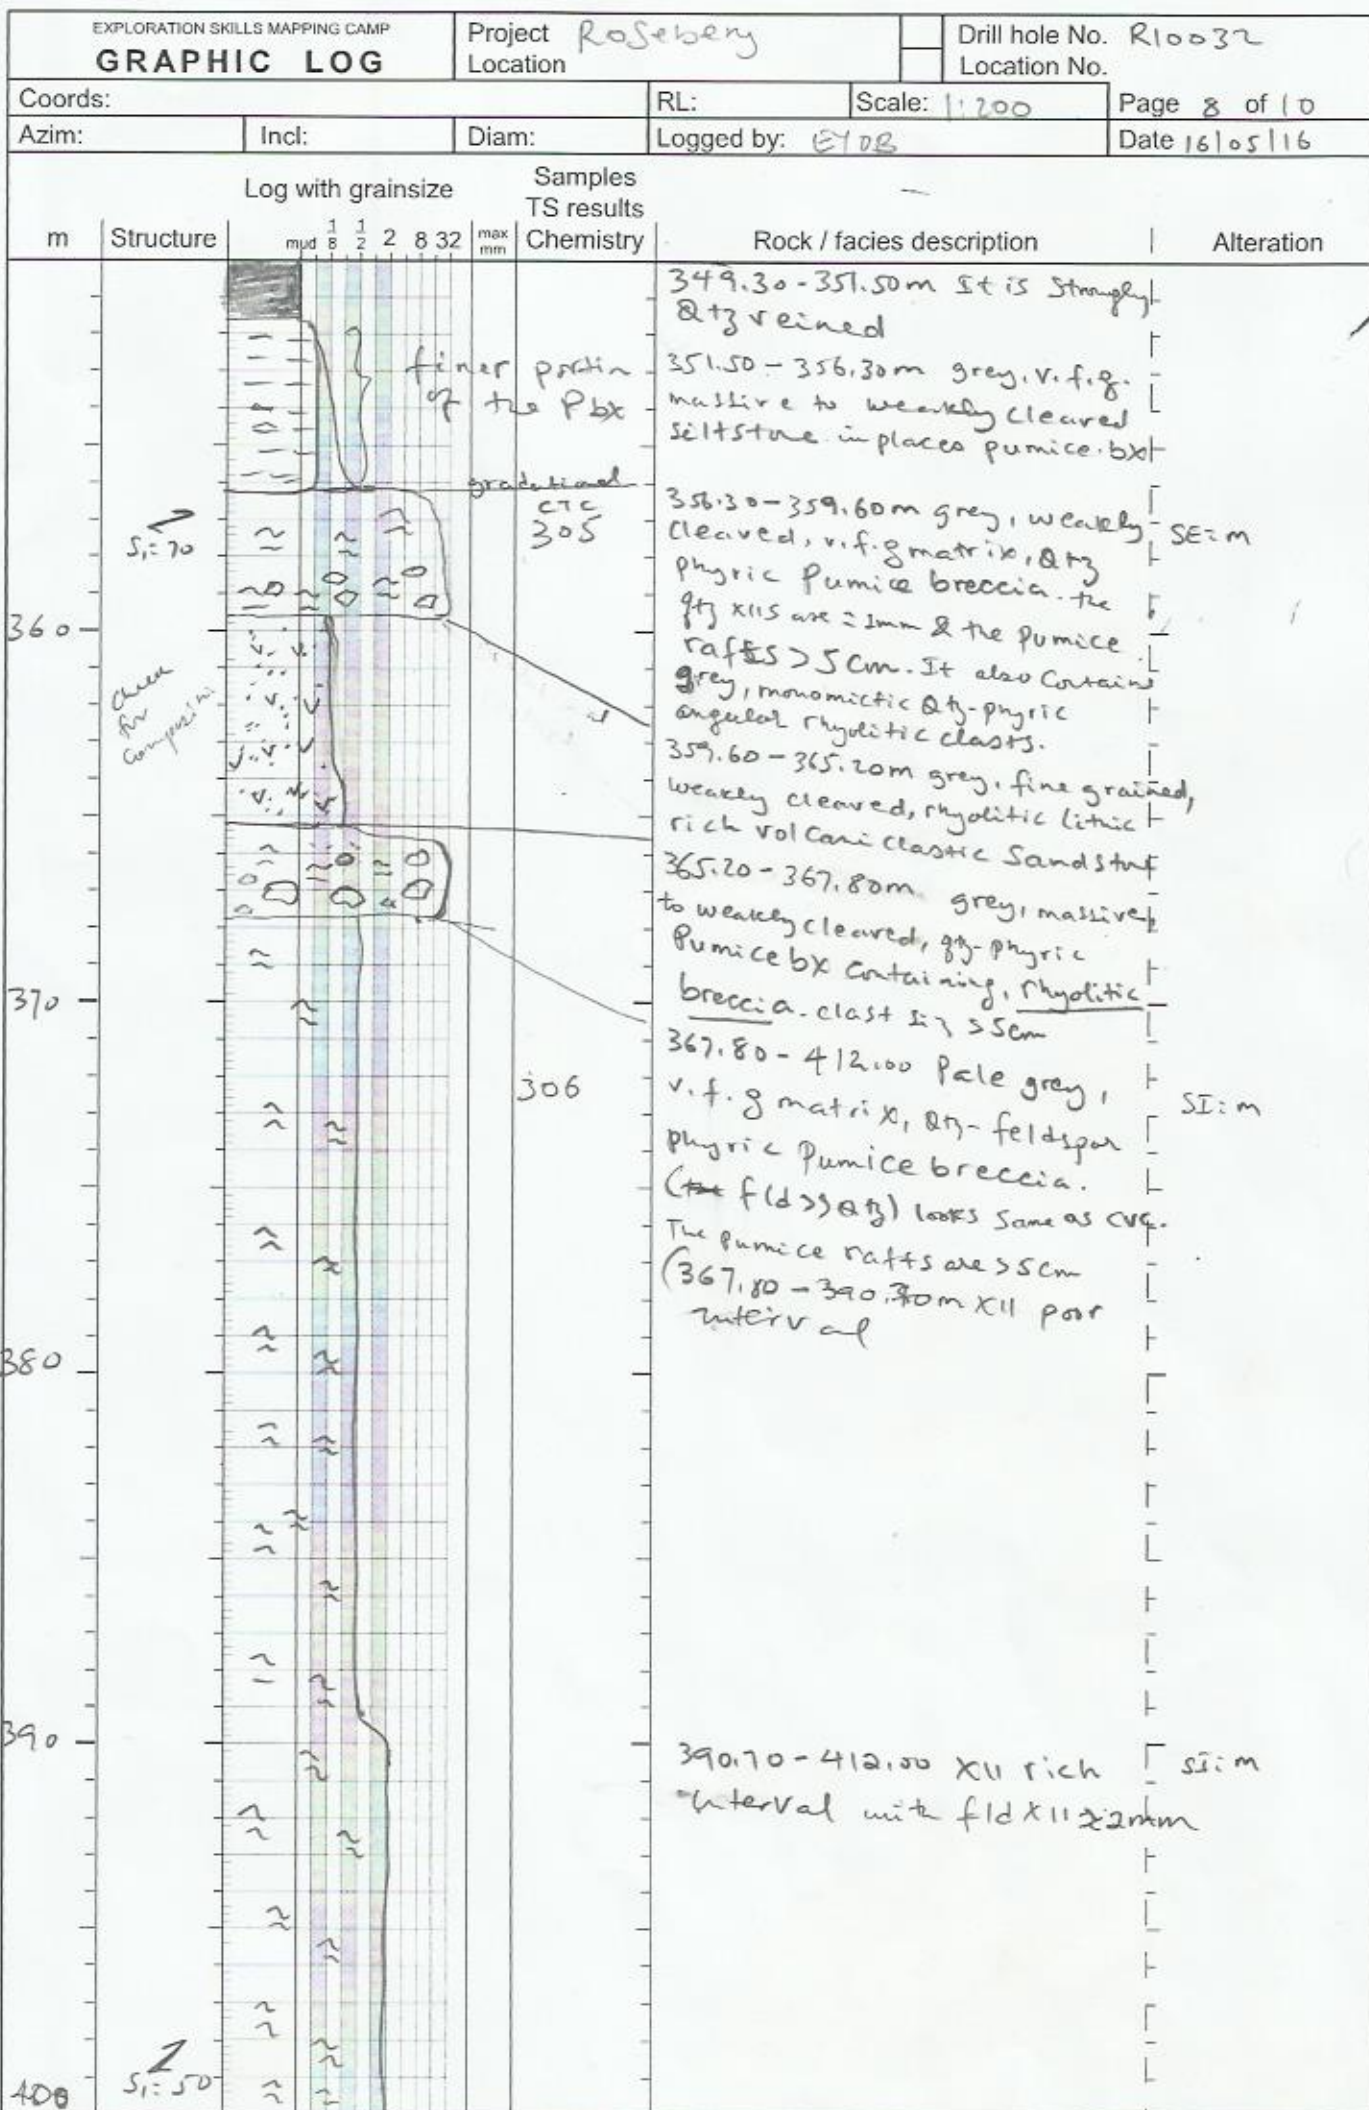 EXPLORATION SKILLS MAPPING CAMP
GRAPHIC LOG
Project Rosebery
Location
Drill hole No. R10032
Location No.
Coords:
RL:
Scale: 1:200
Page 8 of 10
Azim:
Incl:
Diam:
Logged by:
Date 16/05/16
m
Structure
Log with grainsize
mud 1/8 1/2 2 8 32
max mm
Samples
TS results
Chemistry
Rock / facies description
Alteration
349.30-351.50m It is Strongly
Qtz veined
finer portion
of the Pbx
351.50-356.30m grey, v.f.g.
massive to weakly cleaved
siltstone in places pumice.bx
gradational
CTC
305
S1=70
356.30-359.60m grey, weakly
cleaved, v.f.g matrix, Qtz
phyric Pumice breccia. the
qtz xlls are =1mm & the Pumice
rafts >5cm. It also Contains
grey, monomictic Qtz-phyric
angular rhyolitic clasts.
SE=m
360
Check
for
359.60-365.20m grey, fine grained,
weakly cleaved, rhyolitic lithic
rich volcaniclastic Sandstone
365.20-367.80m grey, massive
to weakly cleaved, qtz-phyric
Pumice bx Containing, rhyolitic
breccia. clast siz >5cm
370
306
367.80-412.00 Pale grey,
v.f.g matrix, Qtz-feldspar
phyric Pumice breccia.
(fld>>Qtz) looks Same as CVC.
The pumice rafts are >5cm
(367.80-390.70m Xll poor
interval
SI:m
380
390
390.70-412.00 Xll rich
interval with fld Xll 2mm
SI:m
S1=50
400